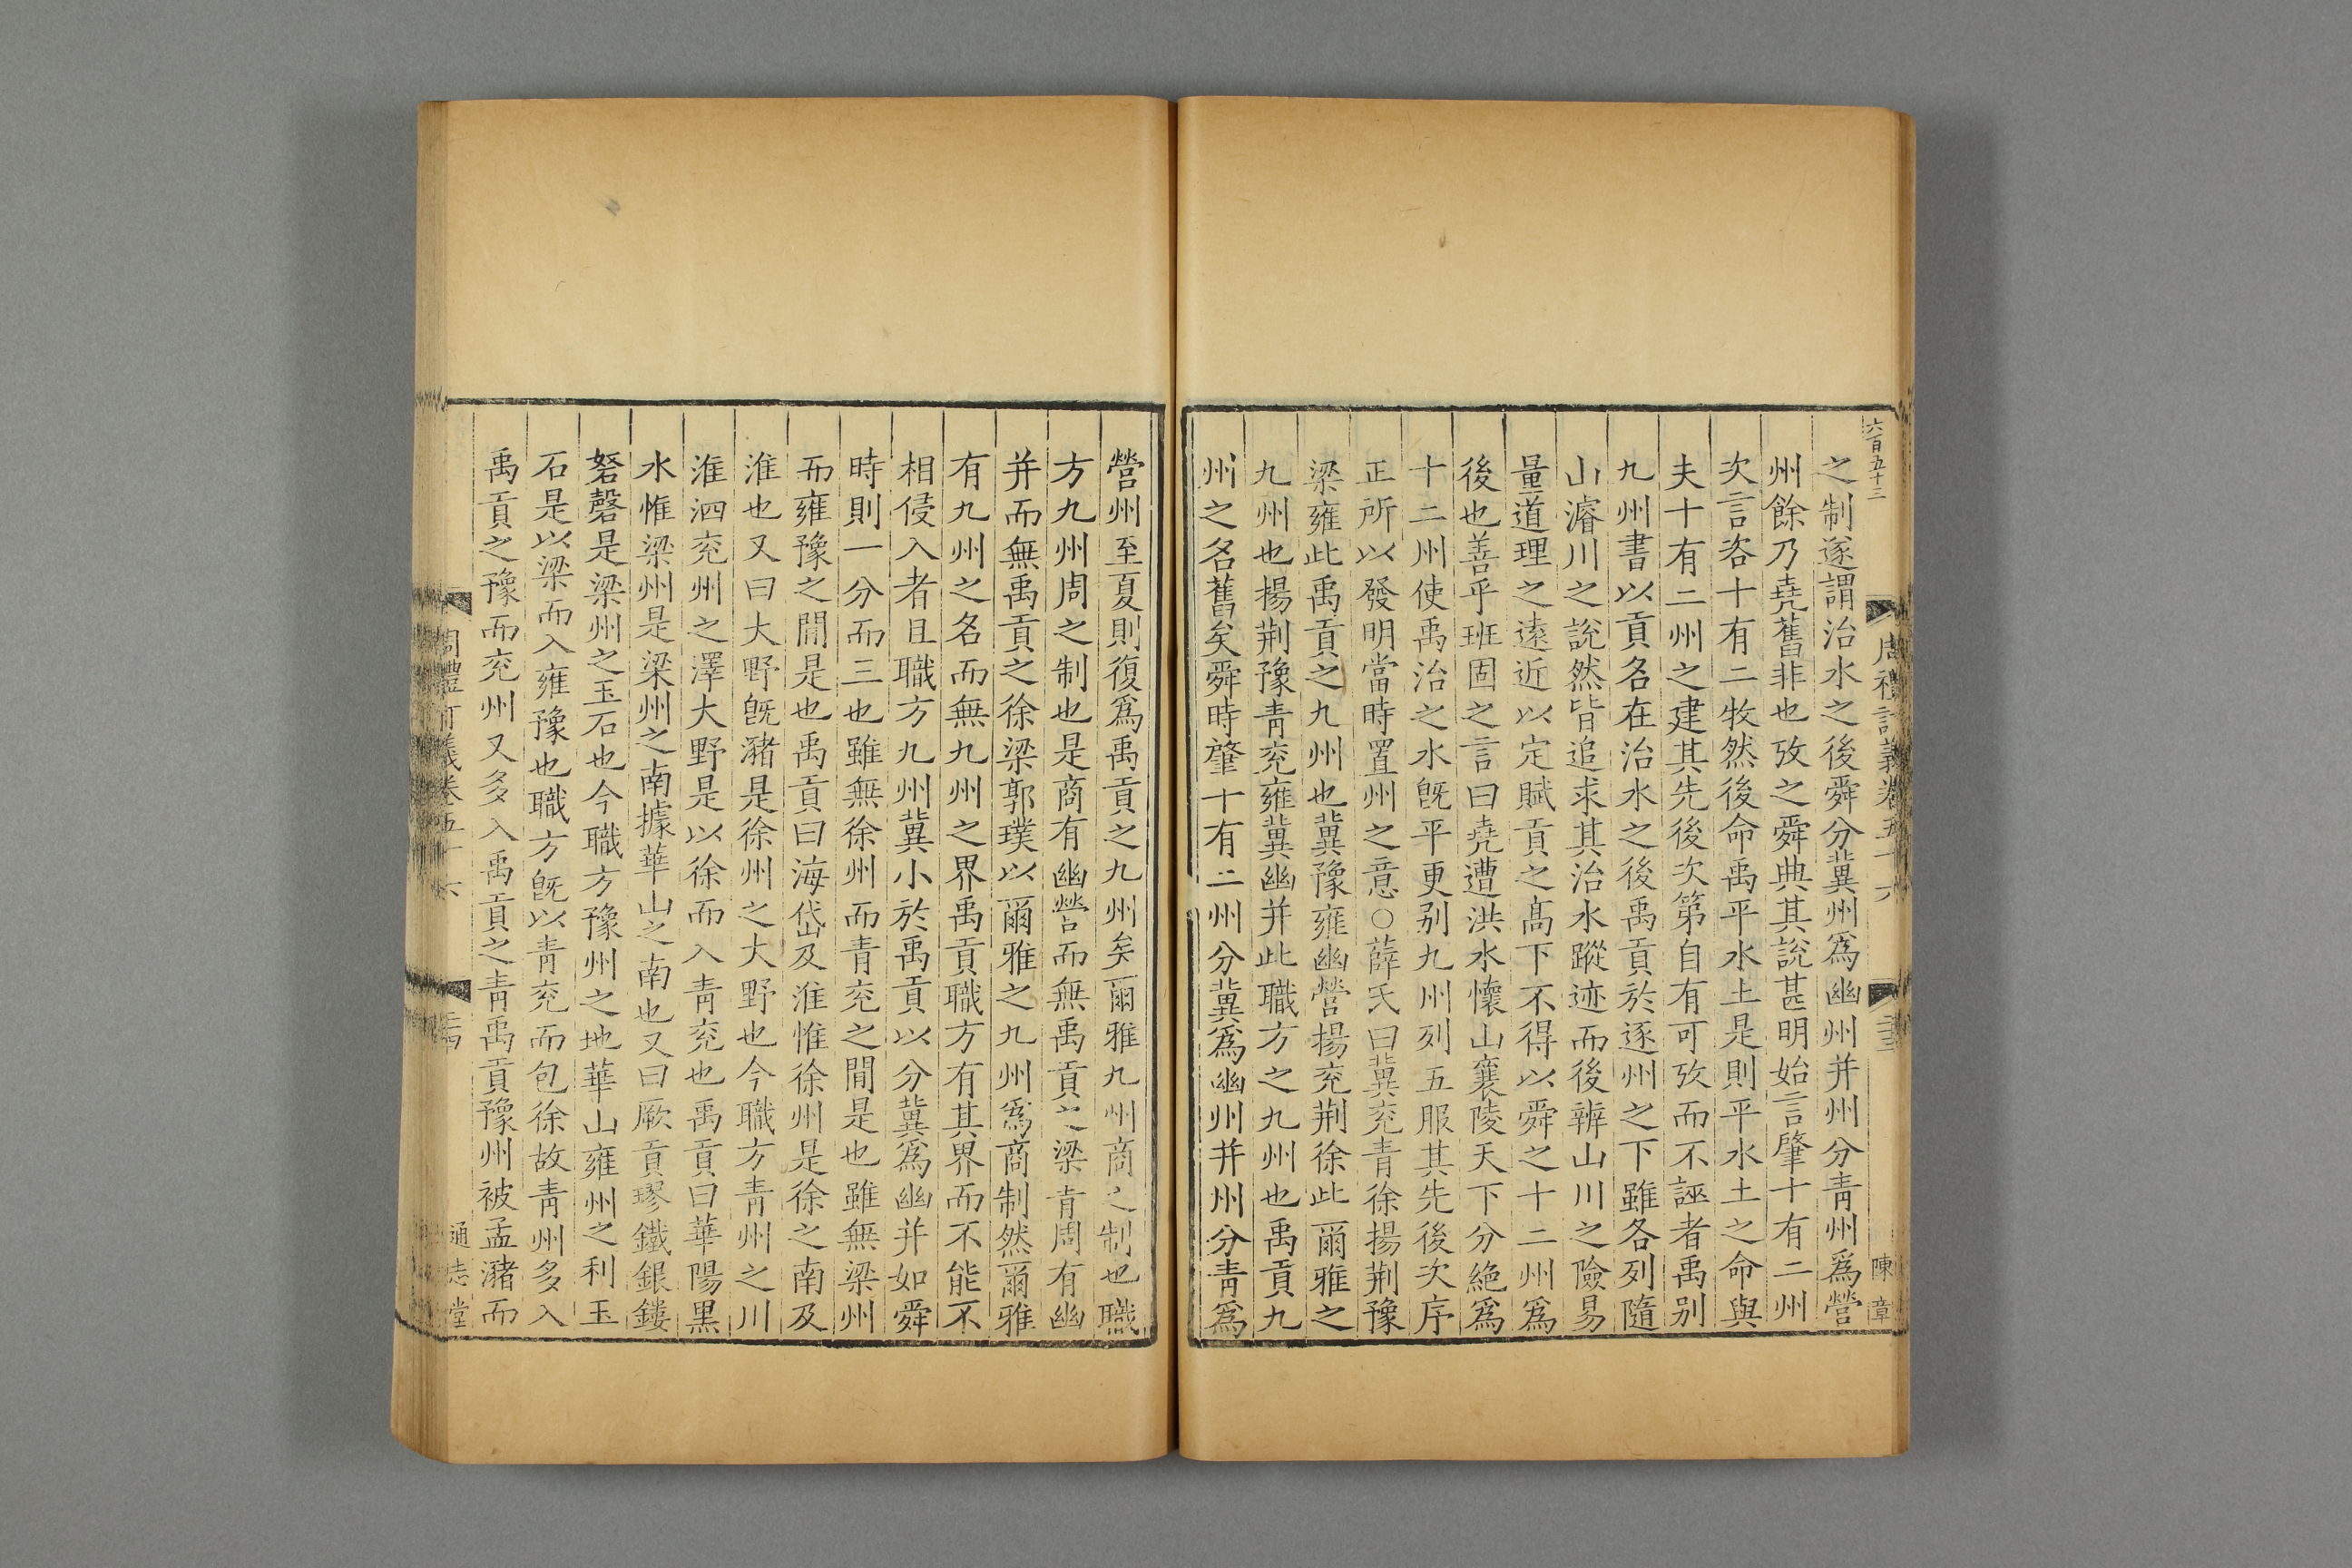 六百五十三
周禮訂義卷五十六
陳章
之制遂謂治水之後舜分冀州爲幽州并州分青州爲營
州餘乃堯舊非也攷之舜典其說甚明始言肇十有二州
次言咨十有二牧然後命禹平水土是則平水土之命與
夫十有二州之建其先後次第自有可攷而不誣者禹别
九州書以貢名在治水之後禹貢於逐州之下雖各列隨
山濬川之說然皆追求其治水蹤迹而後辨山川之險易
量道理之遠近以定賦貢之髙下不得以舜之十二州爲
後也善乎班固之言曰堯遭洪水懷山襄陵天下分絶爲
十二州使禹治之水旣平更别九州列五服其先後次序
正所以發明當時置州之意○薛氏曰冀兖青徐揚荆豫
梁雍此禹貢之九州也冀豫雍幽營揚兖荆徐此爾雅之
九州也揚荆豫青兖雍冀幽并此職方之九州也禹貢九
州之名舊矣舜時肇十有二州分冀爲幽州并州分青爲
營州至夏則復爲禹貢之九州矣爾雅九州商之制也職
方九州周之制也是商有幽營而無禹貢之梁青周有幽
并而無禹貢之徐梁郭璞以爾雅之九州爲商制然爾雅
有九州之名而無九州之界禹貢職方有其界而不能不
相侵入者且職方九州冀小於禹貢以分冀爲幽并如舜
時則一分而三也雖無徐州而青兖之間是也雖無梁州
而雍豫之間是也禹貢曰海岱及淮惟徐州是徐之南及
淮也又曰大野旣瀦是徐州之大野也今職方青州之川
淮泗兖州之澤大野是以徐而入青兖也禹貢曰華陽黑
水惟梁州是梁州之南據華山之南也又曰厥貢璆鐵銀鏤
砮磬是梁州之玉石也今職方豫州之地華山雍州之利玉
石是以梁而入雍豫也職方旣以青兖而包徐故青州多入
禹貢之豫而兖州又多入禹貢之青禹貢豫州被孟瀦而
周禮訂義卷五十六
通志堂